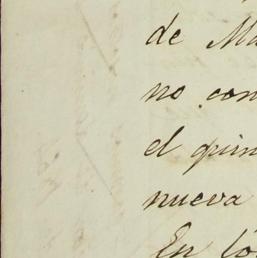 de Ma
no con
el quin
nueva
En lo